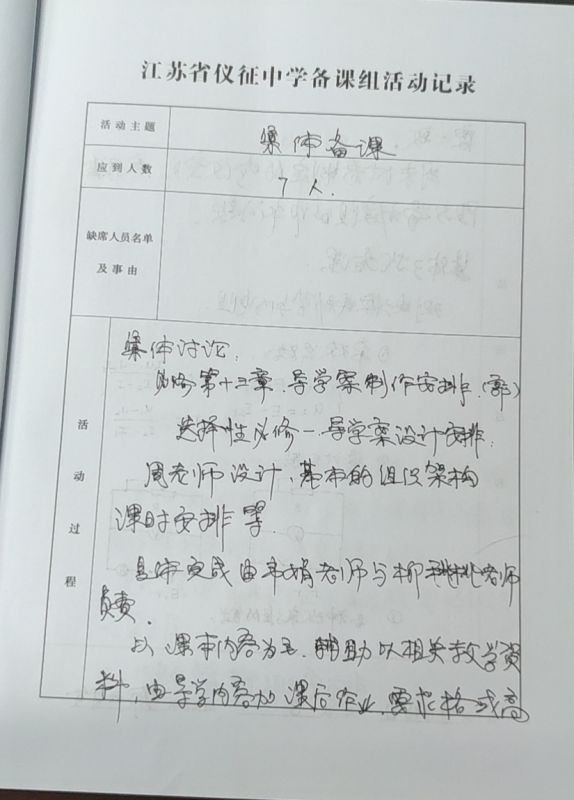 江苏省仪征中学备课组活动记录
活动主题
集体备课
应到人数
7人.
缺席人员名单
及事由
活动过程
集体讨论:
第十三章.导学案制作安排.
选择性必修一导学案设计安排.
周老师设计,基本的组织架构
课时安排等.
完成由老师与柳老师
负责.
以课本内容为主.辅助以相关教学资
料,由导学内容加课后作业.要求